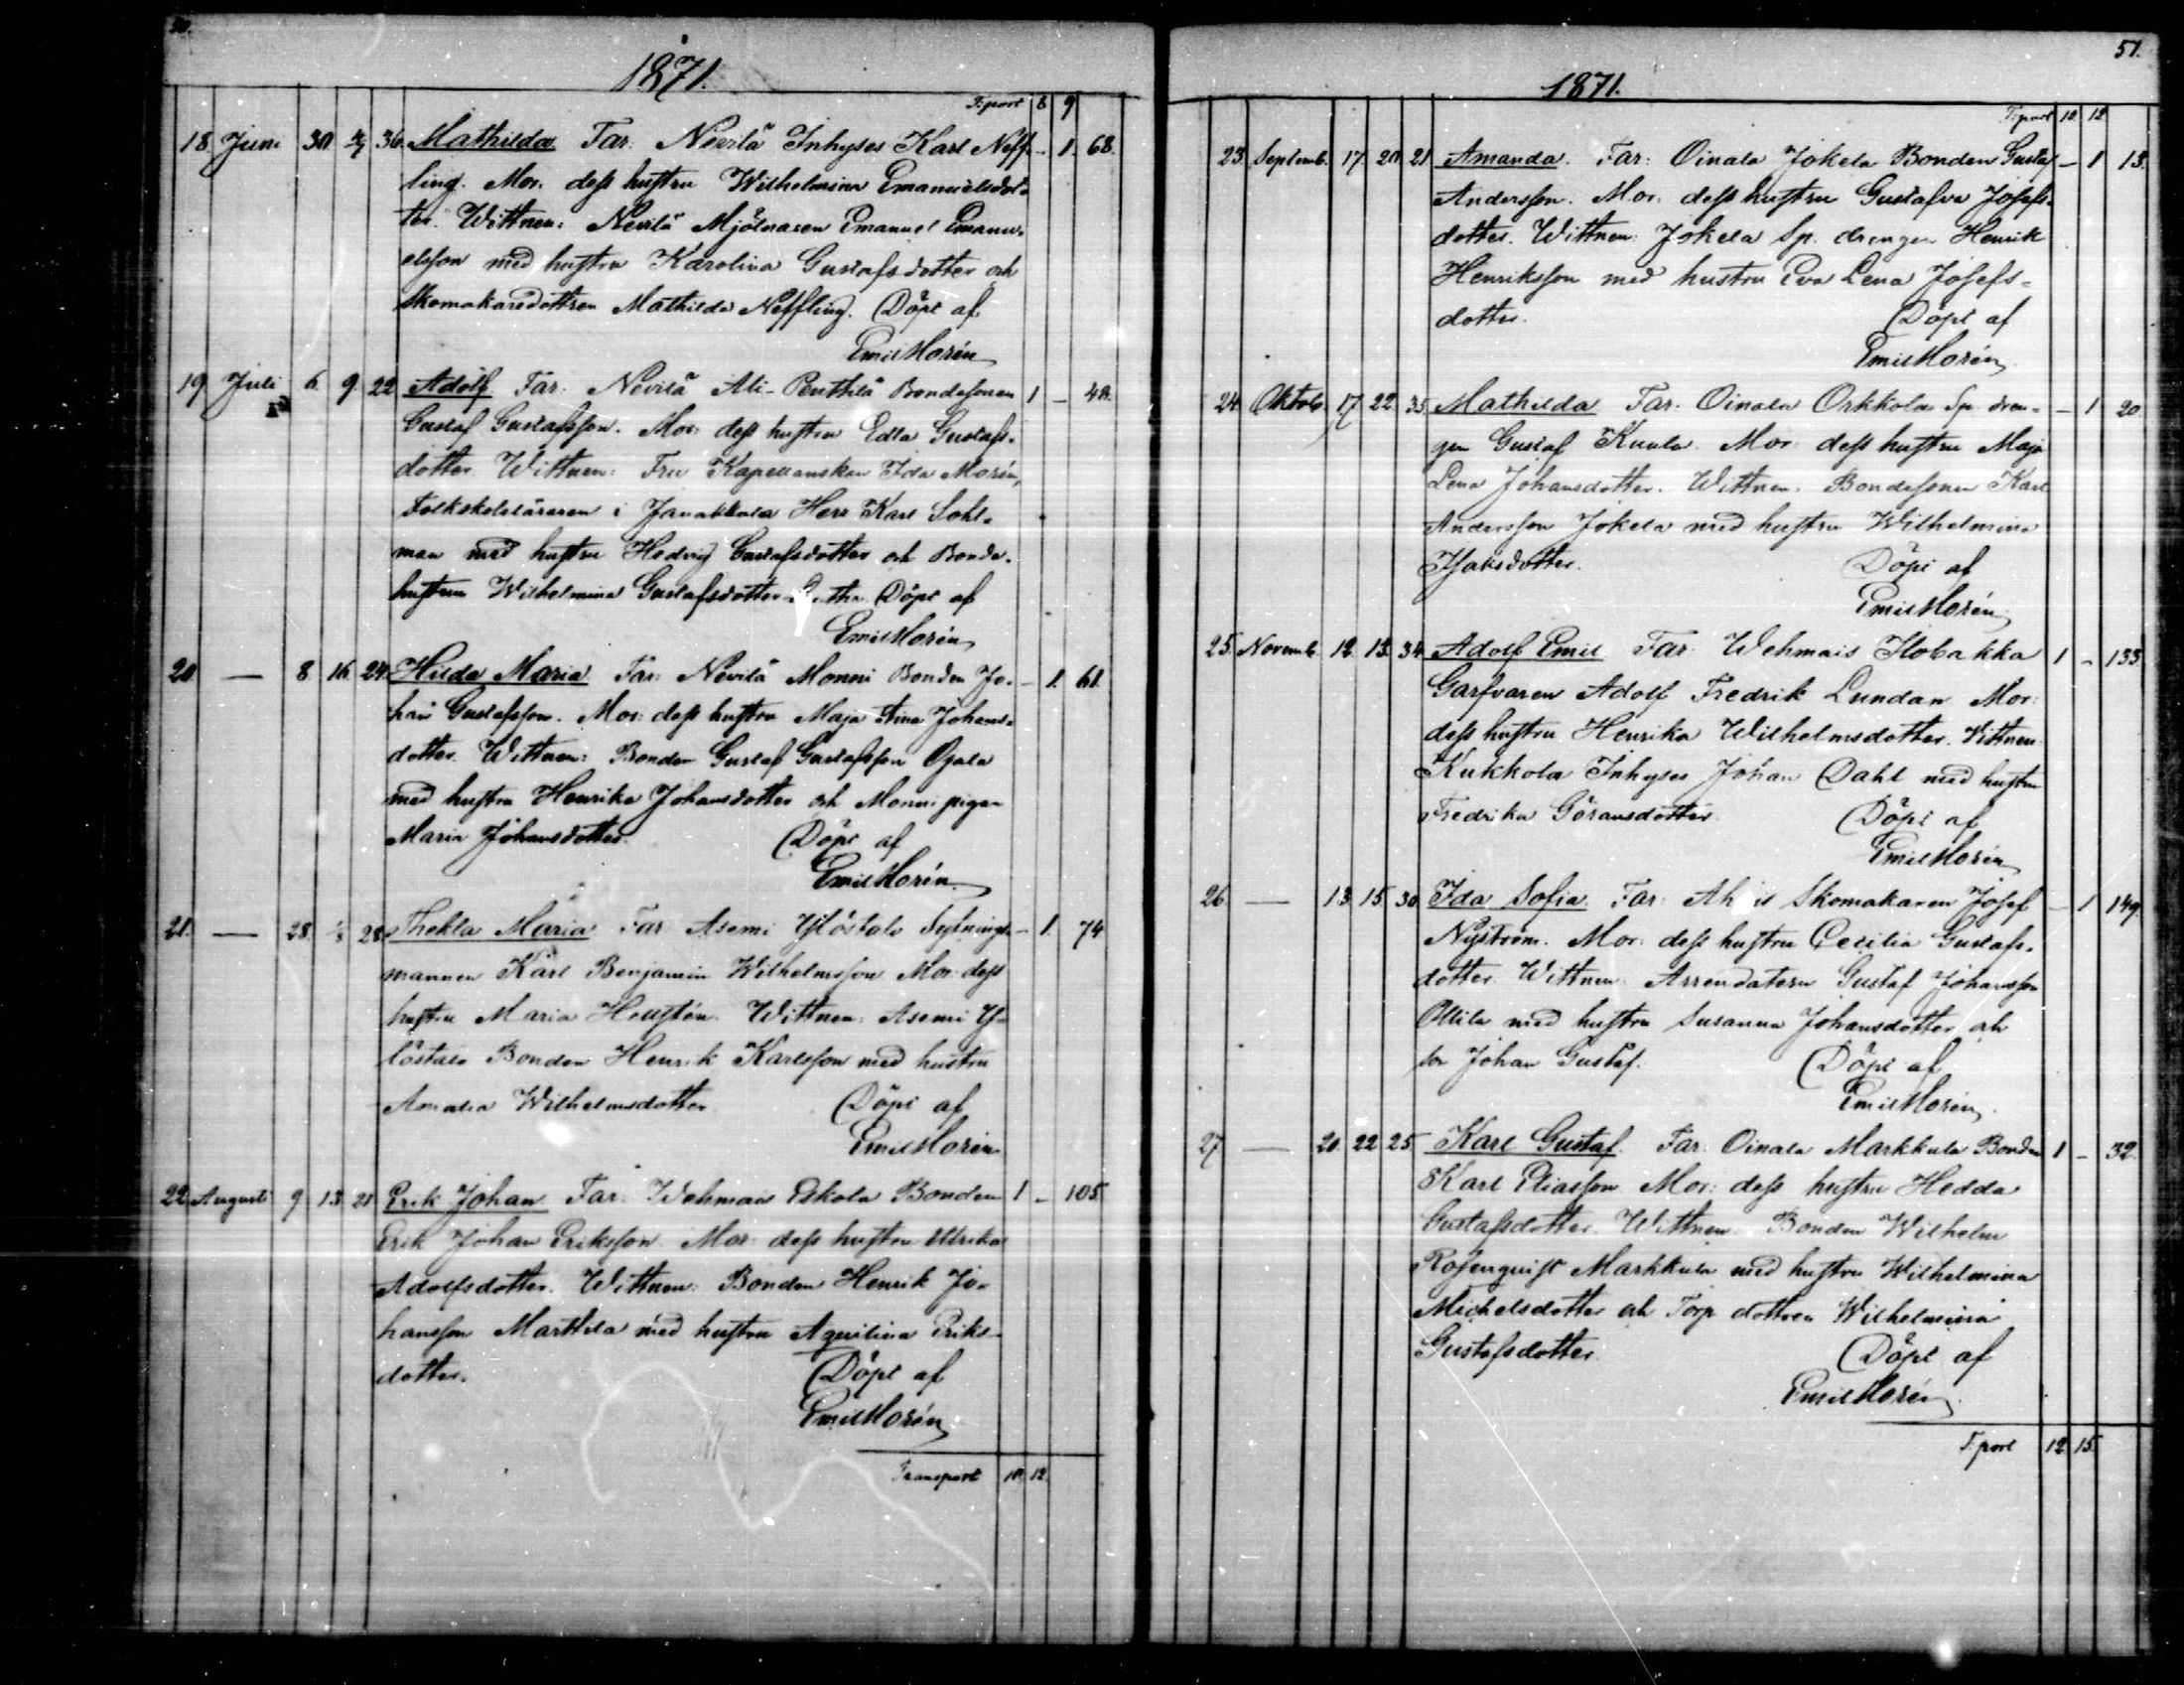 1871.
T:port 8 9
18 Juni 30 2/7 36. Mathilda Far: Nevilä Inhyses Karl Neff- – 1. 68.
ling. Mor: dess hustru Wilhelmina Emanuelsdot-
ter. Wittnen: Nevilä Mjölnaren Emanuel Emanu-
elsson med hustru Karolina Gustafsdotter och
Skomakaredottren Mathilda Neffling. Döpt af
Emil Morén
19 Juli 6. 9. 22 Adolf Far: Nevilä Ali-Penttilä Bondesonen 1 – 48.
Gustaf Gustafsson. Mor: dess hustru Edla Gustafs-
dotter Wittnen: Fru Kapellanskan Ida Morén,
Folkskoleläraren i Janakkala Herr Karl Sohl-
man med hustru Hedvig Gustafsdotter och Bonde-
hustrun Wilhelmina Gustafsdotter Döpt af
Emil Morén
20 — 8 16 24. Hilda Maria Far: Nevilä Monni Bonden Jo- – 1. 61.
han Gustafsson. Mor: dess hustru Maja Stina Johans-
dotter. Wittnen: Bonden Gustaf Gustafsson Ojala
med hustru Henrika Johansdotter och Monni pigan
Maria Johansdotter. Döpt af
Emil Morén.
21. — 28. 28. Thekla Maria Far Asemi Ylöstalo Sytnings- – 1. 74
mannen Karl Benjamin Wilhelmsson Mor: dess
hustru Maria Wittnen: Asemi Y-
löstalo Bonden Henrik Karlsson med hustru
Amalia Wilhelmsdotter. Döpt af
Emil Morén
22 Augusti 9. 13. 21 Erik Johan Far: Wehmais Eskola Bonden 1 – 105
Erik Johan Eriksson Mor: dess hustru Ulrika
Adolfsdotter. Wittnen: Bonden Henrik Jo-
hansson Marttila med hustru Aquilina Eriks-
dotter. Döpt af
Emil Morén
Transport 10. 12.
51.
1871.
T:port 10 12
23. Septemb. 17. 20. 21 Amanda. Far: Oinala Jokela Bonden Gustaf – 1 13.
Andersson. Mor: dess hustru Gustafva Josefs-
dotter. Wittnen: Jokela Sp. drengen Henrik
Henriksson med hustru Eva Lena Josefs-
dotter. Döpt af
Emil Morén
24 Oktob. 17 22 35 Mathilda Far: Oinala Orkkola Sp. dren- – 1 20
gen Gustaf Kuula. Mor: dess hustru Maja
Lena Johansdotter. Wittnen: Bondesonen Karl
Andersson Jokela med hustru Wilhelmina
Isaksdotter. Döpt af
Emil Morén
25. Novemb. 12. 13. 34. Adolf Emil Far: Wehmais Ilobakka 1 – 133
Garfvaren Adolf Fredrik Lundan Mor:
dess hustru Henrika Wilhelmsdotter. Wittnen:
Kukkola Inhyses Johan Dahl med hustru
Fredrika Göransdotter. Döpt af
Emil Morén
26 — 13 15 30 Ida Sofia Far: Skomakaren Josef – 1 149.
Nyström. Mor: dess hustru Cecilia Gustafs-
dotter. Wittnen: Arrendatorn Gustaf Johansson
Ollila med hustru Susanna Johansdotter och
son Johan Gustaf. Döpt af
Emil Morén.
27 — 20. 22 25 Karl Gustaf. Far: Oinala Markkula Bonden 1 – 32.
Karl Eliasson Mor: dess hustru Hedda
Gustafsdotter. Wittnen: Bonden Wilhelm
Rosenquist Markkula med hustru Wilhelmina
Michelsdotter och Torp. dottren Wilhelmina
Gustafsdotter. Döpt af
Emil Morén.
T:port 12. 15.